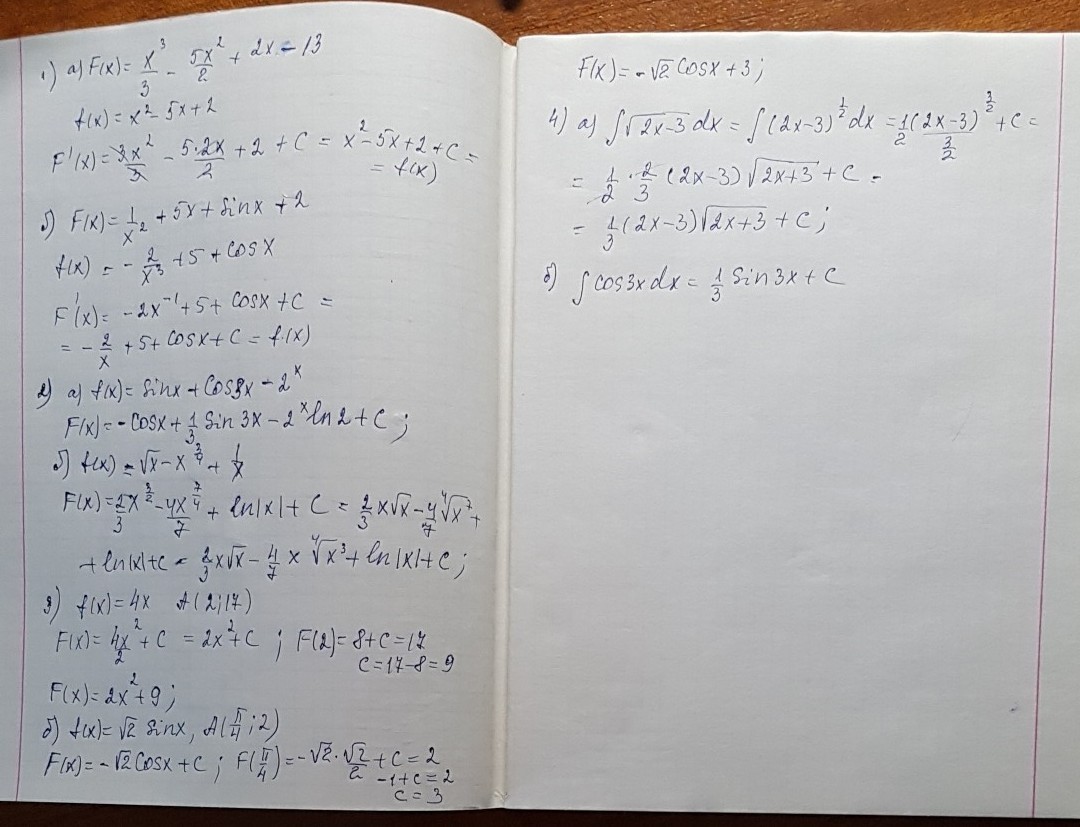 1) а) F(x) = x³/3 - 5x²/2 + 2x - 13
f(x) = x² - 5x + 2
F'(x) = 3x²/3 - 5·2x/2 + 2 + C = x² - 5x + 2 + C =
= f(x)
б) F(x) = 1/x² + 5x + sinx + 2
f(x) = - 2/x³ + 5 + cosx
F'(x) = -2x⁻¹ + 5 + cosx + C =
= - 2/x + 5 + cosx + C = f(x)
2) а) f(x) = sinx + cos3x - 2ˣ
F(x) = - cosx + 1/3 sin3x - 2ˣ ln2 + C;
б) f(x) = √x - x^(3/4) + 1/x
F(x) = 2/3 x^(3/2) - 4x^(7/4)/7 + ln|x| + C = 2/3 x√x - 4/7 ⁴√x⁷ +
+ ln|x| + C = 2/3 x√x - 4/7 x ⁴√x³ + ln|x| + C;
3) f(x) = 4x A(2;17)
F(x) = 4x²/2 + C = 2x² + C; F(2) = 8 + C = 17
C = 17 - 8 = 9
F(x) = 2x² + 9;
б) f(x) = √2 sinx, A(π/4; 2)
F(x) = - √2 cosx + C; F(π/4) = - √2 · √2/2 + C = 2
-1 + C = 2
C = 3
F(x) = - √2 cosx + 3;
4) а) ∫√2x-3 dx = ∫(2x-3)^(1/2) dx = 1/2 (2x-3)^(3/2)/(3/2) + C =
= 1/2 · 2/3 (2x-3)√2x+3 + C =
= 1/3 (2x-3)√2x+3 + C;
б) ∫cos3x dx = 1/3 sin3x + C